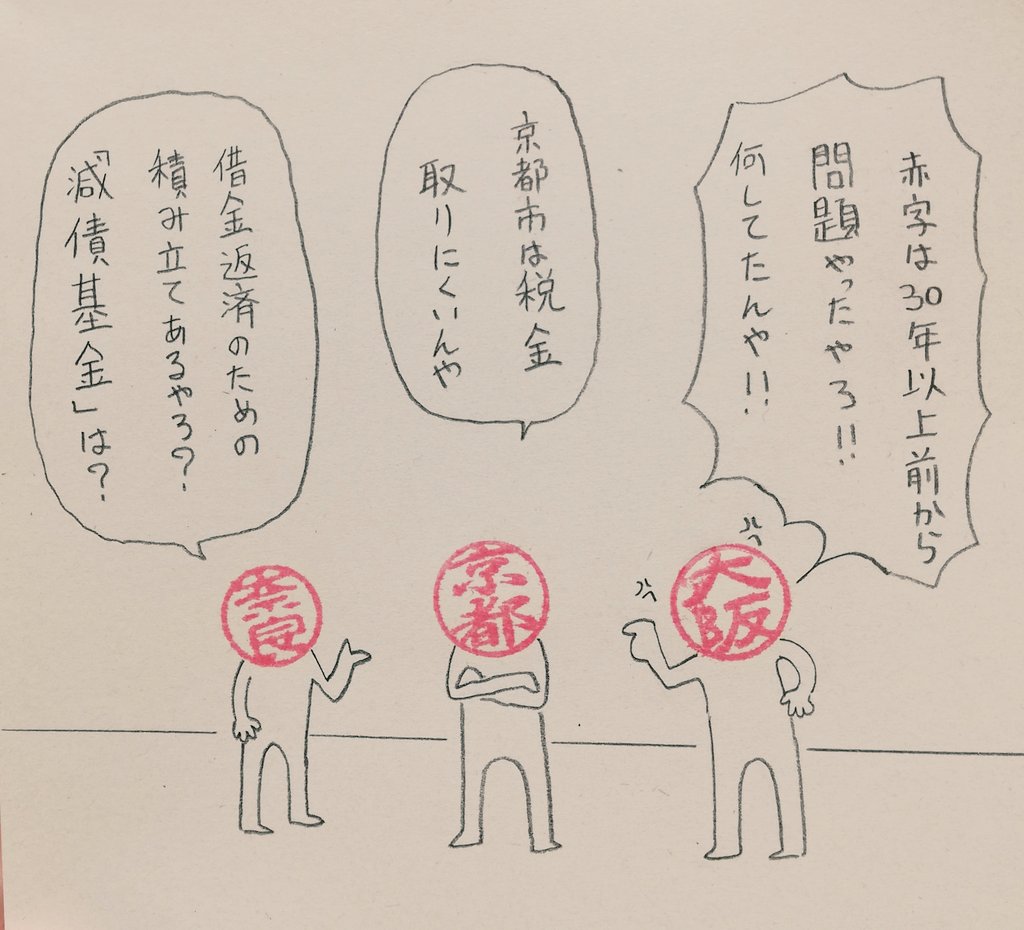 赤字は30年以上前から
問題やったやろ!!
何してたんや!!
京都市は税金
取りにくいんや
借金返済のための
積み立てあるやろ?
「減債基金」は?
大阪
京都
奈良